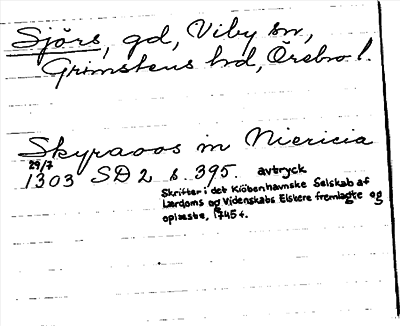 Sjörs, gd, Viby sn,
Grimstens hd, Örebro l.
Skyraoos in Niericia
29/7
1303 SD 2 s. 395. avtryck
Skrifter i det Kiöbenhavnske Selskab af
Lærdoms og Videnskabs Elskere fremlagte og
oplæste, 1745 f.